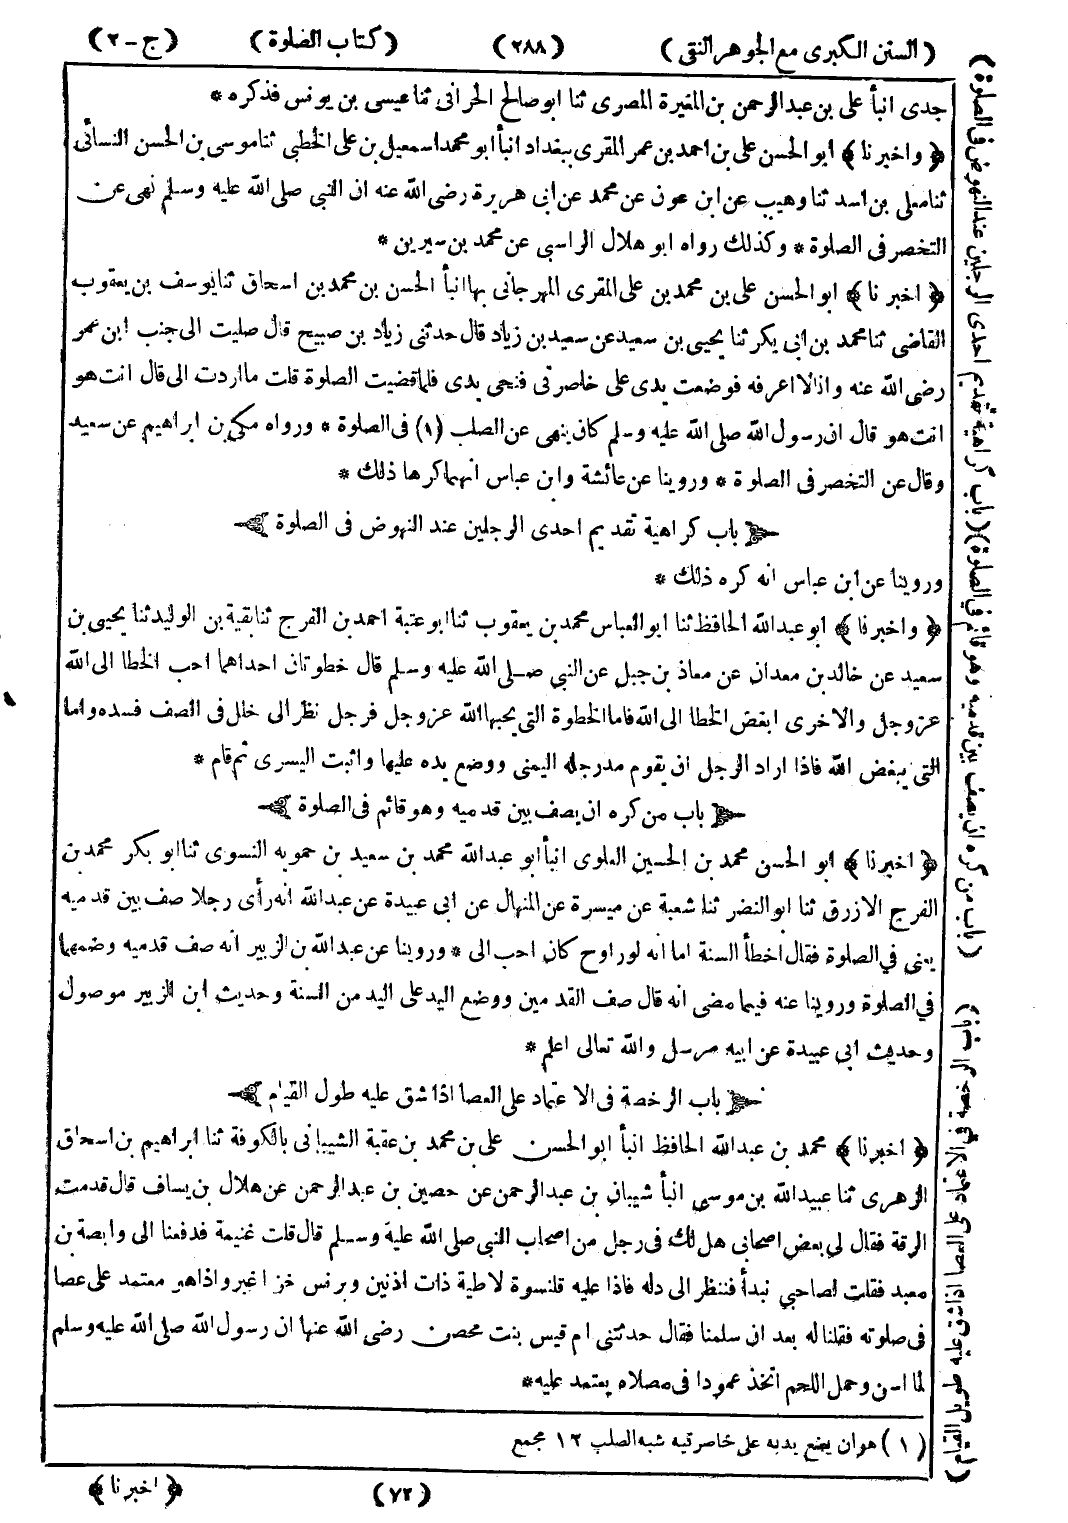 (السنن الكبرى مع الجوهر النقى) (٢٨٨) (كتاب الصلوة) (ج-٢)
جدى انبأ على بن عبدالرحمن بن المغيرة المصرى ثنا ابو صالح الحرانى ثنا عيسى بن يونس فذكره *
﴿ واخبرنا ﴾ ابو الحسن على بن احمد بن عمر المقرى ببغداد انبأ ابو محمد اسمعيل بن على الخطبى ثنا موسى بن الحسن النسائى
ثنا معلى بن اسد ثنا وهيب عن ابن عون عن محمد عن ابى هريرة رضى الله عنه ان النبى صلى الله عليه وسلم نهى عن
التخصر فى الصلوة * وكذلك رواه ابو هلال الراسبى عن محمد بن سيرين *
﴿ اخبرنا ﴾ ابو الحسن على بن محمد بن على المقرى المهرجانى بها انبأ الحسن بن محمد بن اسحاق ثنا يوسف بن يعقوب
القاضى ثنا محمد بن ابى بكر ثنا يحيى بن سعيد عن سعيد بن زياد قال حدثنى زياد بن صبيح قال صليت الى جنب ابن عمر
رضى الله عنه واذ الا اعرفه فوضعت يدى على خاصرتى فنحى يدى فلما قضيت الصلوة قلت ما اردت الى قال انت هو
انت هو قال ان رسول الله صلى الله عليه وسلم كان ينهى عن الصلب (١) فى الصلوة * ورواه مكى بن ابراهيم عن سعيد
وقال عن التخصر فى الصلوة * وروينا عن عائشة وابن عباس انهما كرها ذلك *
باب كراهية تقديم احدى الرجلين عند النهوض فى الصلوة
وروينا عن ابن عباس انه كره ذلك *
﴿ واخبرنا ﴾ ابو عبدالله الحافظ ثنا ابو العباس محمد بن يعقوب ثنا ابو عتبة احمد بن الفرج ثنا بقية بن الوليد ثنا يحيى بن
سعيد عن خالد بن معدان عن معاذ بن جبل عن النبى صلى الله عليه وسلم قال خطوتان احداهما احب الخطا الى الله
عزوجل والاخرى ابغض الخطا الى الله فاما الخطوة التى يحبها الله عزوجل فرجل نظر الى خلل فى الصف فسده واما
التى يبغض الله فاذا اراد الرجل ان يقوم مد رجله اليمنى ووضع يده عليها واثبت اليسرى ثم قام *
باب من كره ان يصف بين قدميه وهو قائم فى الصلوة
﴿ اخبرنا ﴾ ابو الحسن محمد بن الحسين العلوى انبأ ابو عبدالله محمد بن سعيد بن حمويه النسوى ثنا ابو بكر محمد بن
الفرج الازرق ثنا ابو النضر ثنا شعبة عن ميسرة عن المنهال عن ابى عبيدة عن عبدالله انه رأى رجلا صف بين قدميه
يعنى فى الصلوة فقال اخطأ السنة اما انه لو راوح كان احب الى * وروينا عن عبدالله بن الزبير انه صف قدميه وضمهما
فى الصلوة وروينا عنه فيما مضى انه قال صف القدمين ووضع اليد على اليد من السنة وحديث ابن الزبير موصول
وحديث ابى عبيدة عن ابيه مرسل والله تعالى اعلم *
باب الرخصة فى الاعتماد على العصا اذا شق عليه طول القيام
﴿ اخبرنا ﴾ محمد بن عبدالله الحافظ انبأ ابو الحسن على بن محمد بن عقبة الشيبانى بالكوفة ثنا ابراهيم بن اسحاق
الزهرى ثنا عبيدالله بن موسى انبأ شيبان بن عبدالرحمن عن حصين بن عبدالرحمن عن هلال بن يساف قال قدمت
الرقة فقال لى بعض اصحابى هل لك فى رجل من اصحاب النبى صلى الله عليه وسلم قال قلت غنيمة فدفعنا الى وابصة بن
معبد فقلت لصاحبى نبدأ فننظر الى دله فاذا عليه قلنسوة لاطية ذات اذنين وبرنس خز اغبر واذا هو معتمد على عصا
فى صلوته فقلنا له بعد ان سلمنا فقال حدثتنى ام قيس بنت محصن رضى الله عنها ان رسول الله صلى الله عليه وسلم
لما اسن وحمل اللحم اتخذ عمودا فى مصلاه يعتمد عليه *
(١) هو ان يضع يديه على خاصرتيه شبه الصلب ١٢ مجمع
(٧٢) ﴿ اخبرنا ﴾
(باب كراهية تقديم احدى الرجلين عند النهوض فى الصلوة)
(باب من كره ان يصف بين قدميه وهو قائم فى الصلوة)
(باب الرخصة فى الاعتماد على العصا اذا شق عليه طول القيام)